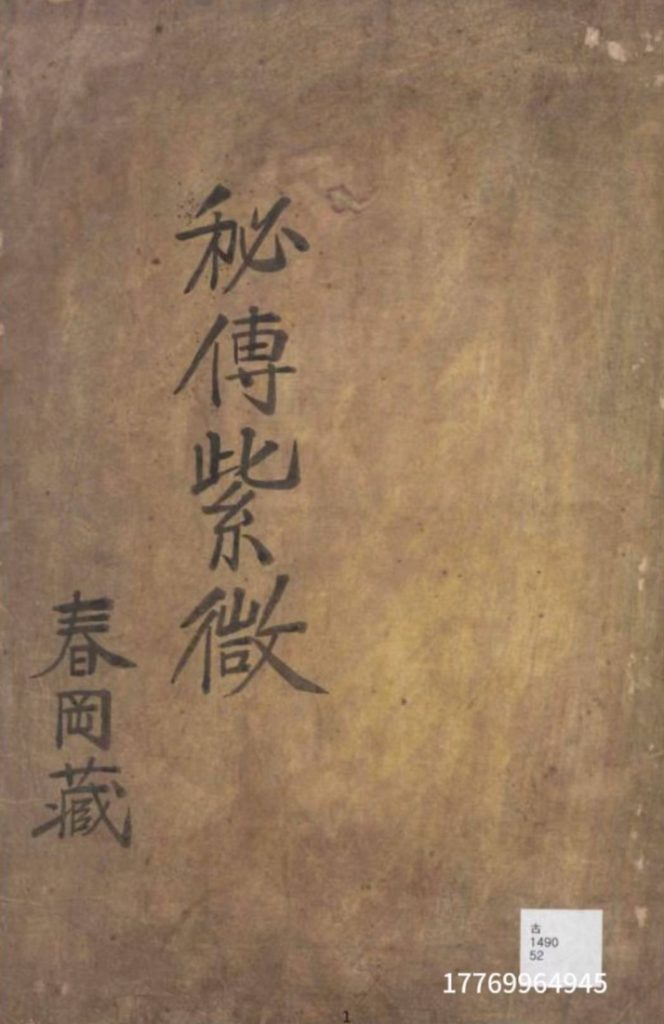 秘傳紫微
春岡藏
古
1490
52
17769964945
1